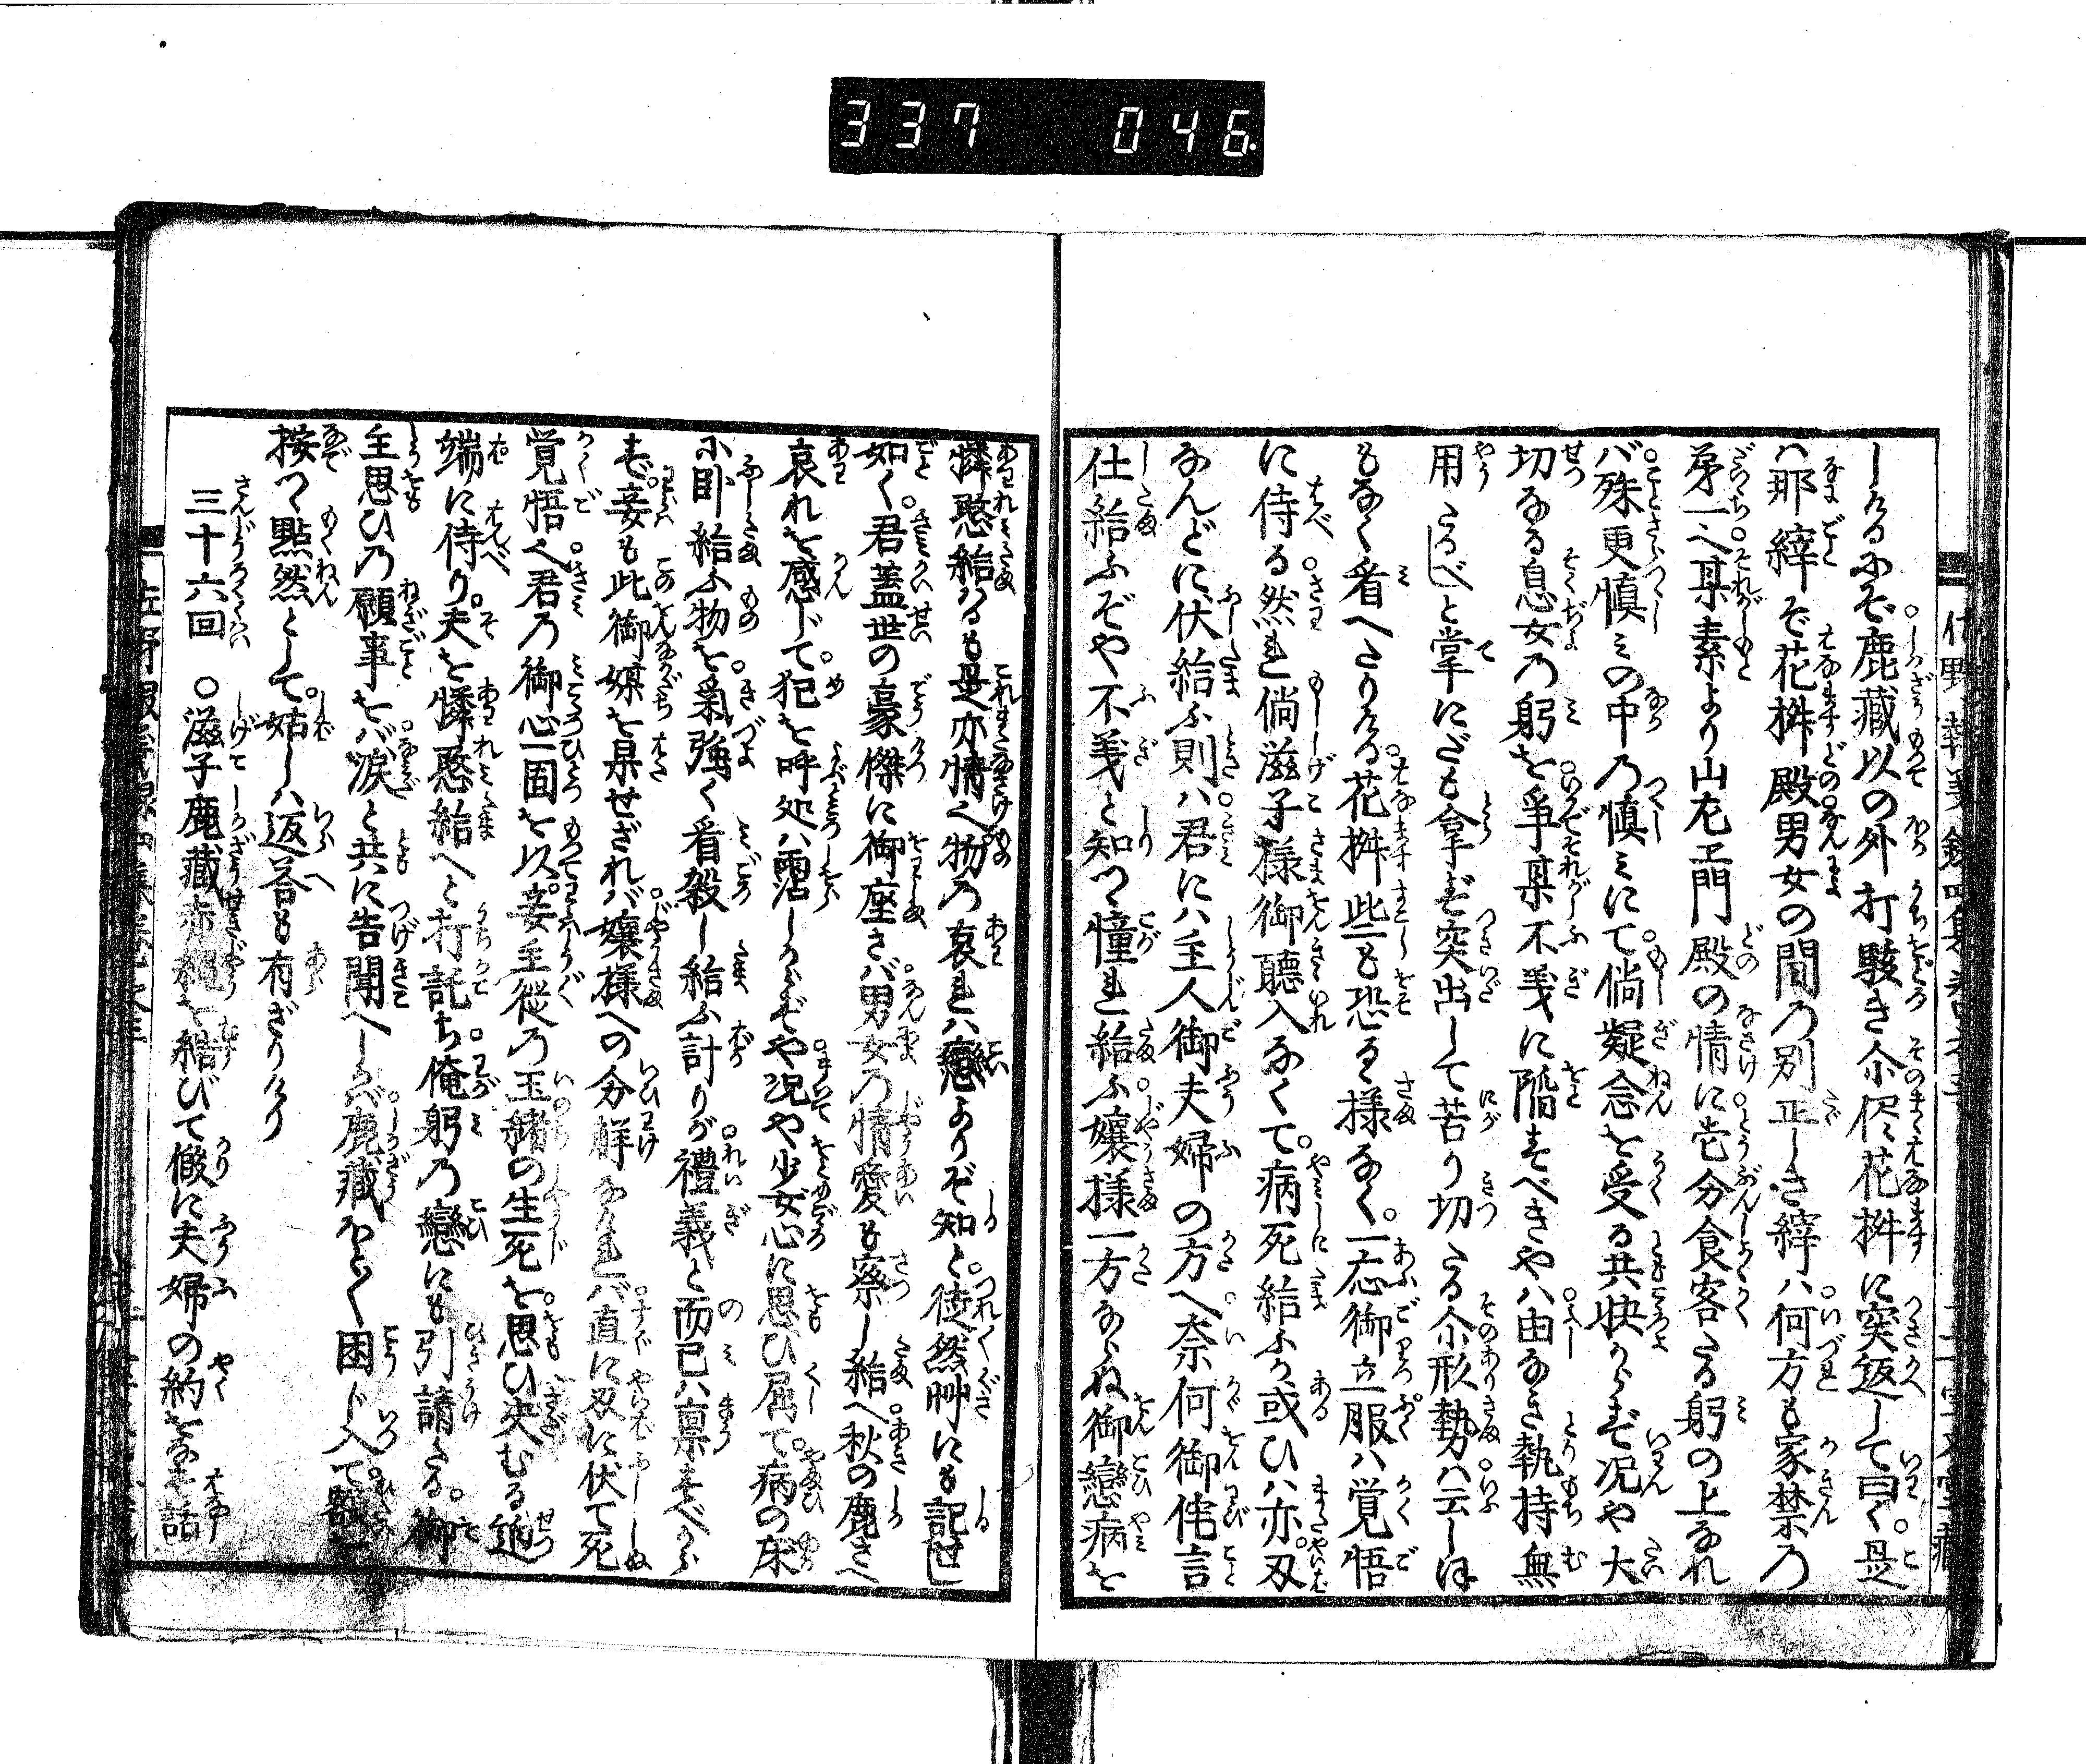 337 046
しけるにぞ鹿藏以の外打駭き尒侭花桝に突返して曰く是
ハ那縡ぞ花桝殿男女の間乃別正しき縡ハ何方も家禁乃
苐一へ某素より山左エ門殿の情に壱分食客たる躬の上なれ
バ殊更慎ミの中乃慎ミにて倘疑念を受る共快からず况や大
切なる息女乃躬を争某不義に陥すべきやハ由なき執持無
用たるべしと掌にだも拿ず突出して苦り切たる尒形勢ハ云しほ
もなく看へたりける花桝些も恐る様なく一応御立服ハ覚悟
に侍る然れ倘滋子様御聽入なくて病死給ふか或ひハ亦刄
なんどに伏給ふ則ハ君にハ主人御夫婦の方へ奈何御侘言
仕給ふぞや不義と知つ憧れ給ふ嬢様一方ならぬ御戀病を
憐愍給はるも是亦情へ物乃哀れハ戀よりぞ知と徒然艸にも記せし
如く君蓋世の豪傑に御座さバ男女乃情愛も察し給へ秋の鹿さへ
哀れを感じて犯を呼処ハ霑しからずや况や少女心に思ひ屈て病の床
に卧給ふ物を氣強く看殺し給ふ計りが禮義と而已ハ稟すべから
ず妾も此御媒を果せざれバ嬢様への分觧なけれバ直に刄に伏て死
覚悟へ君乃御心一固を以妾主従乃玉緒の生死を思ひ决むる廹
端に侍り夫を憐愍給へと打託ち俺躬乃戀にも引請たる御
主思ひ乃願事をバ涙と共に告聞へしかバ鹿藏ほとく困じ入て
按つ點然として姑しハ返荅も有ざりけり
三十六回 ○滋子鹿藏赤繩を結びて假に夫婦の約をなす話